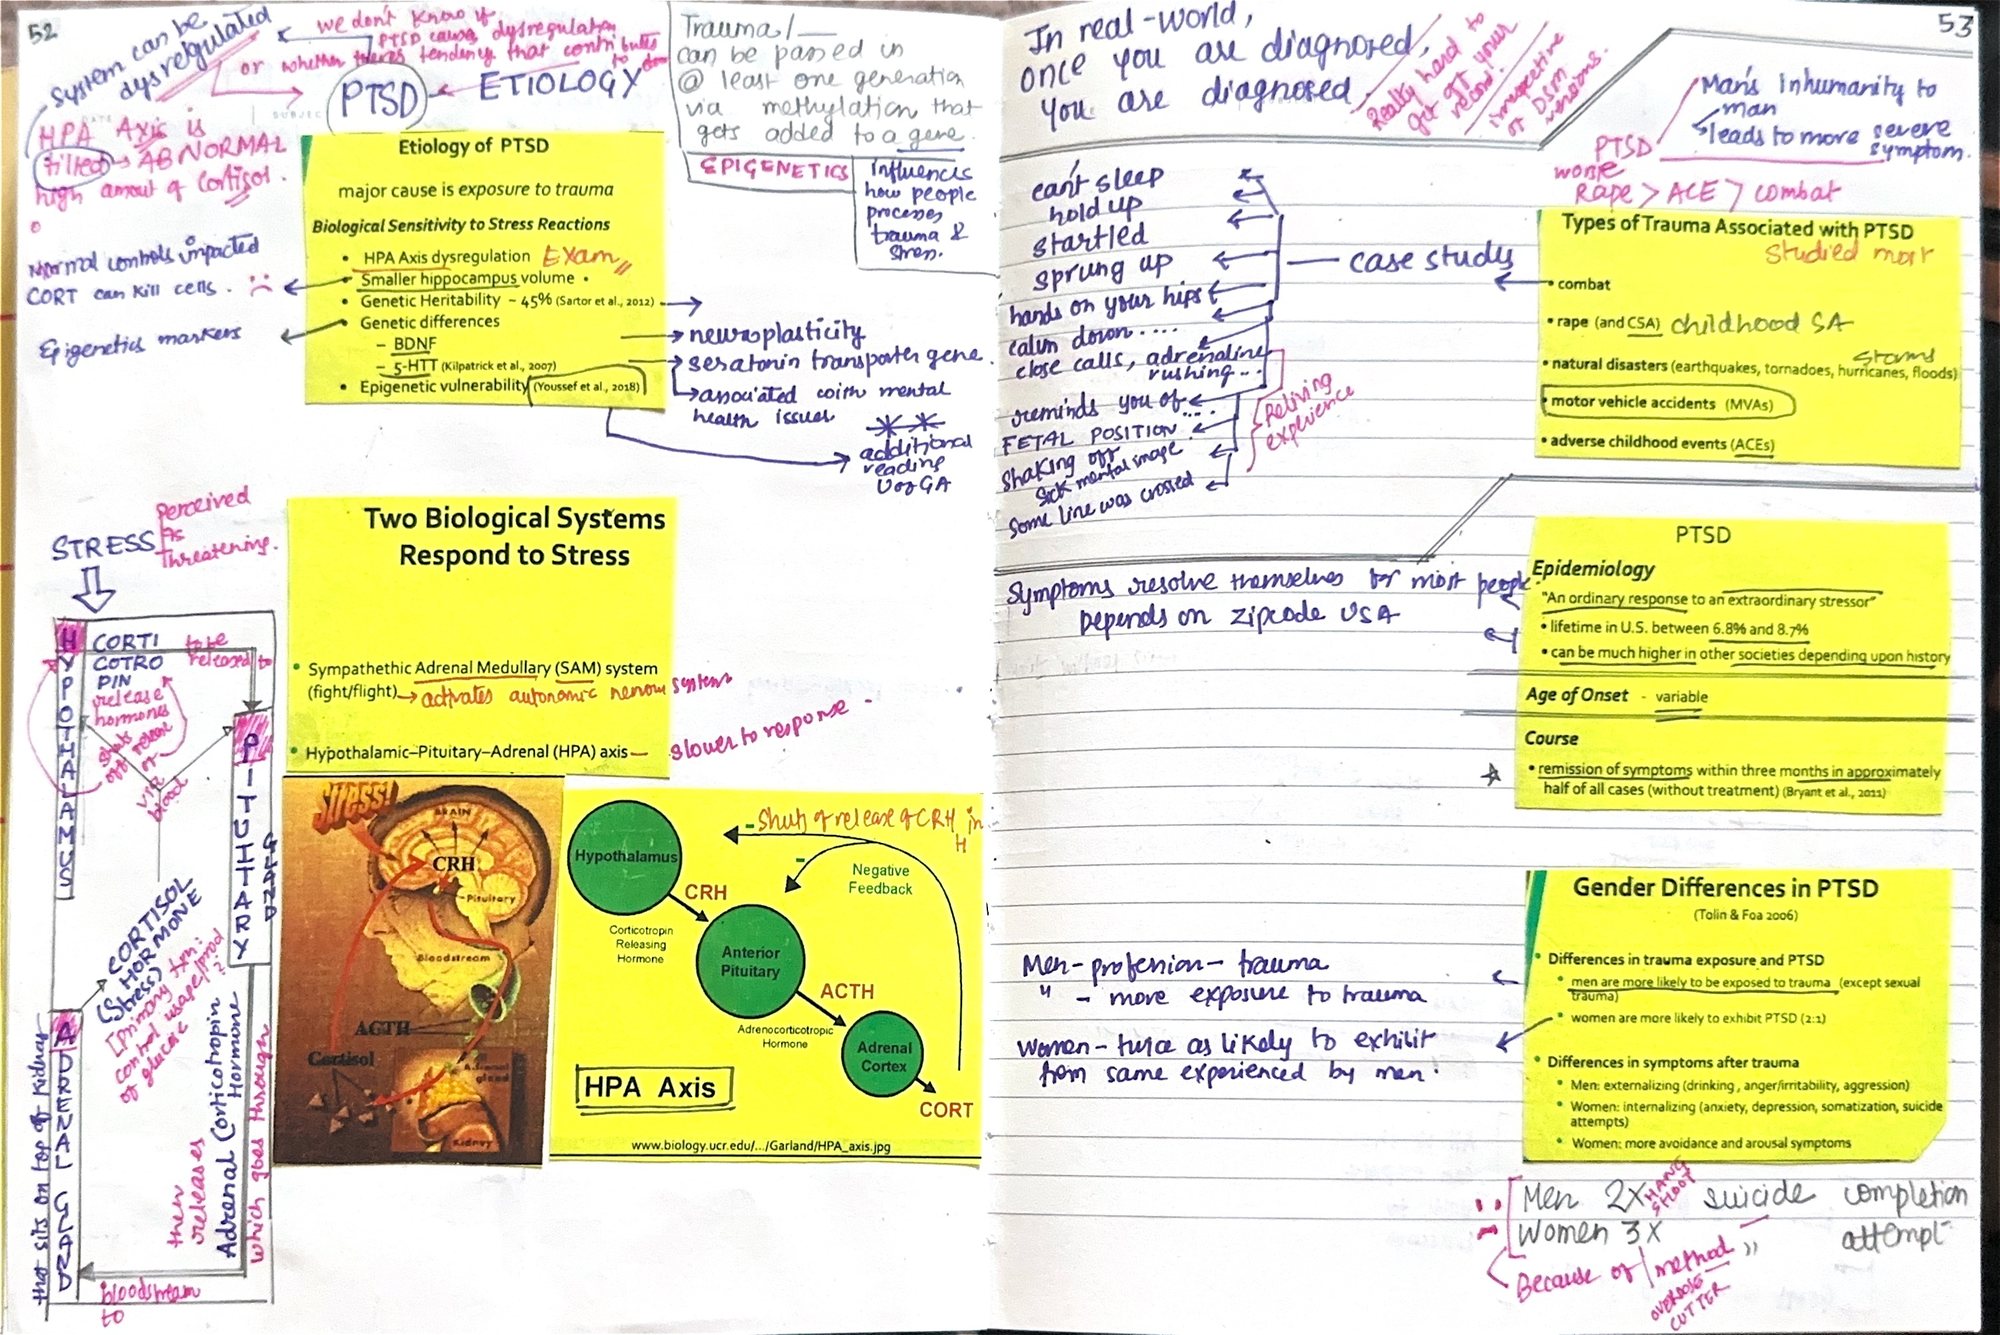 52
System can be
dysregulated
we don't know if
PTSD causes dysregulation
or whether theres tendency that contributes
to
PTSD
ETIOLOGY
HPA Axis is
tilted → ABNORMAL
high amount of Cortisol.
Normal controls impacted
CORT can kill cells.
Epigenetics markers
Trauma/
can be passed in
@ least one generation
via methylation that
gets added to a gene.
EPIGENETICS
influences
how people
processes
trauma &
stress.
Etiology of PTSD
major cause is exposure to trauma
Biological Sensitivity to Stress Reactions
• HPA Axis dysregulation Exam
• Smaller hippocampus volume
• Genetic Heritability ~ 45% (Sartor et al., 2012)
• Genetic differences
– BDNF
– 5-HTT (Kilpatrick et al., 2007)
• Epigenetic vulnerability (Youssef et al., 2018)
neuroplasticity
seratonin transporter gene.
associated with mental
health issues
additional
reading
U of GA
STRESS
perceived
as
threatening.
HYPOTHALAMUS
CORTI
COTRO
PIN
release
hormones
to be
released to
shuts
off release
or
via
blood
PITUITARY
GLAND
CORTISOL
HORMONE
(Stress)
[primary fxn:
control usage/prod
of glucose
?
ADRENAL GLAND
that sits on top of kidney
then
releases
Adrenal Corticotropin
Hormone
which goes through
bloodstream
to
Two Biological Systems
Respond to Stress
• Sympathethic Adrenal Medullary (SAM) system
(fight/flight) → activates autonomic nervous system
• Hypothalamic–Pituitary–Adrenal (HPA) axis — slower to response.
Stress!
BRAIN
CRH
Pituitary
Bloodstream
ACTH
Cortisol
Adrenal
gland
Kidney
- Shuts of release of CRH in
H
Hypothalamus
-
Negative
Feedback
CRH
Corticotropin
Releasing
Hormone
Anterior
Pituitary
ACTH
Adrenocorticotropic
Hormone
Adrenal
Cortex
CORT
HPA Axis
www.biology.ucr.edu/.../Garland/HPA_axis.jpg
53
In real-world,
once you are diagnosed,
you are diagnosed.
Really hard to
get off your
record!
irrespective
of DSM
versions.
Man's Inhumanity to
man
leads to more severe
symptom.
PTSD
worse
Rape > ACE > combat
can't sleep
hold up
startled
sprung up
hands on your hips
calm down....
close calls, adrenaline
rushing...
reminds you of....
FETAL POSITION
Shaking off
sick mental image
Some line was crossed
case studies
Reliving
experience
Types of Trauma Associated with PTSD
Studied most
• combat
• rape (and CSA) childhood SA
storms
• natural disasters (earthquakes, tornadoes, hurricanes, floods)
• motor vehicle accidents (MVAs)
• adverse childhood events (ACEs)
Symptoms resolve themselves for most people
Depends on zipcode USA
PTSD
Epidemiology
"An ordinary response to an extraordinary stressor"
• lifetime in U.S. between 6.8% and 8.7%
• can be much higher in other societies depending upon history
Age of Onset - variable
Course
• remission of symptoms within three months in approximately
half of all cases (without treatment) (Bryant et al., 2011)
Men - profession - trauma
" - more exposure to trauma
Women - twice as likely to exhibit
from same experienced by men!
Gender Differences in PTSD
(Tolin & Foa 2006)
• Differences in trauma exposure and PTSD
• men are more likely to be exposed to trauma (except sexual
trauma)
• women are more likely to exhibit PTSD (2:1)
• Differences in symptoms after trauma
• Men: externalizing (drinking, anger/irritability, aggression)
• Women: internalizing (anxiety, depression, somatization, suicide
attempts)
• Women: more avoidance and arousal symptoms
Men 2X suicide completion
HANG
SHOOT
Women 3X " attempt
Because of method
OVERDOSE
CUTTER